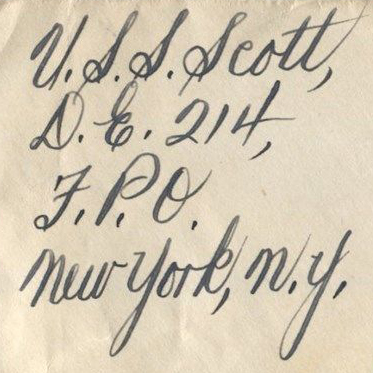 U.S.S. Scott,
D.E. 214,
F.P.O.
New York, N.Y.